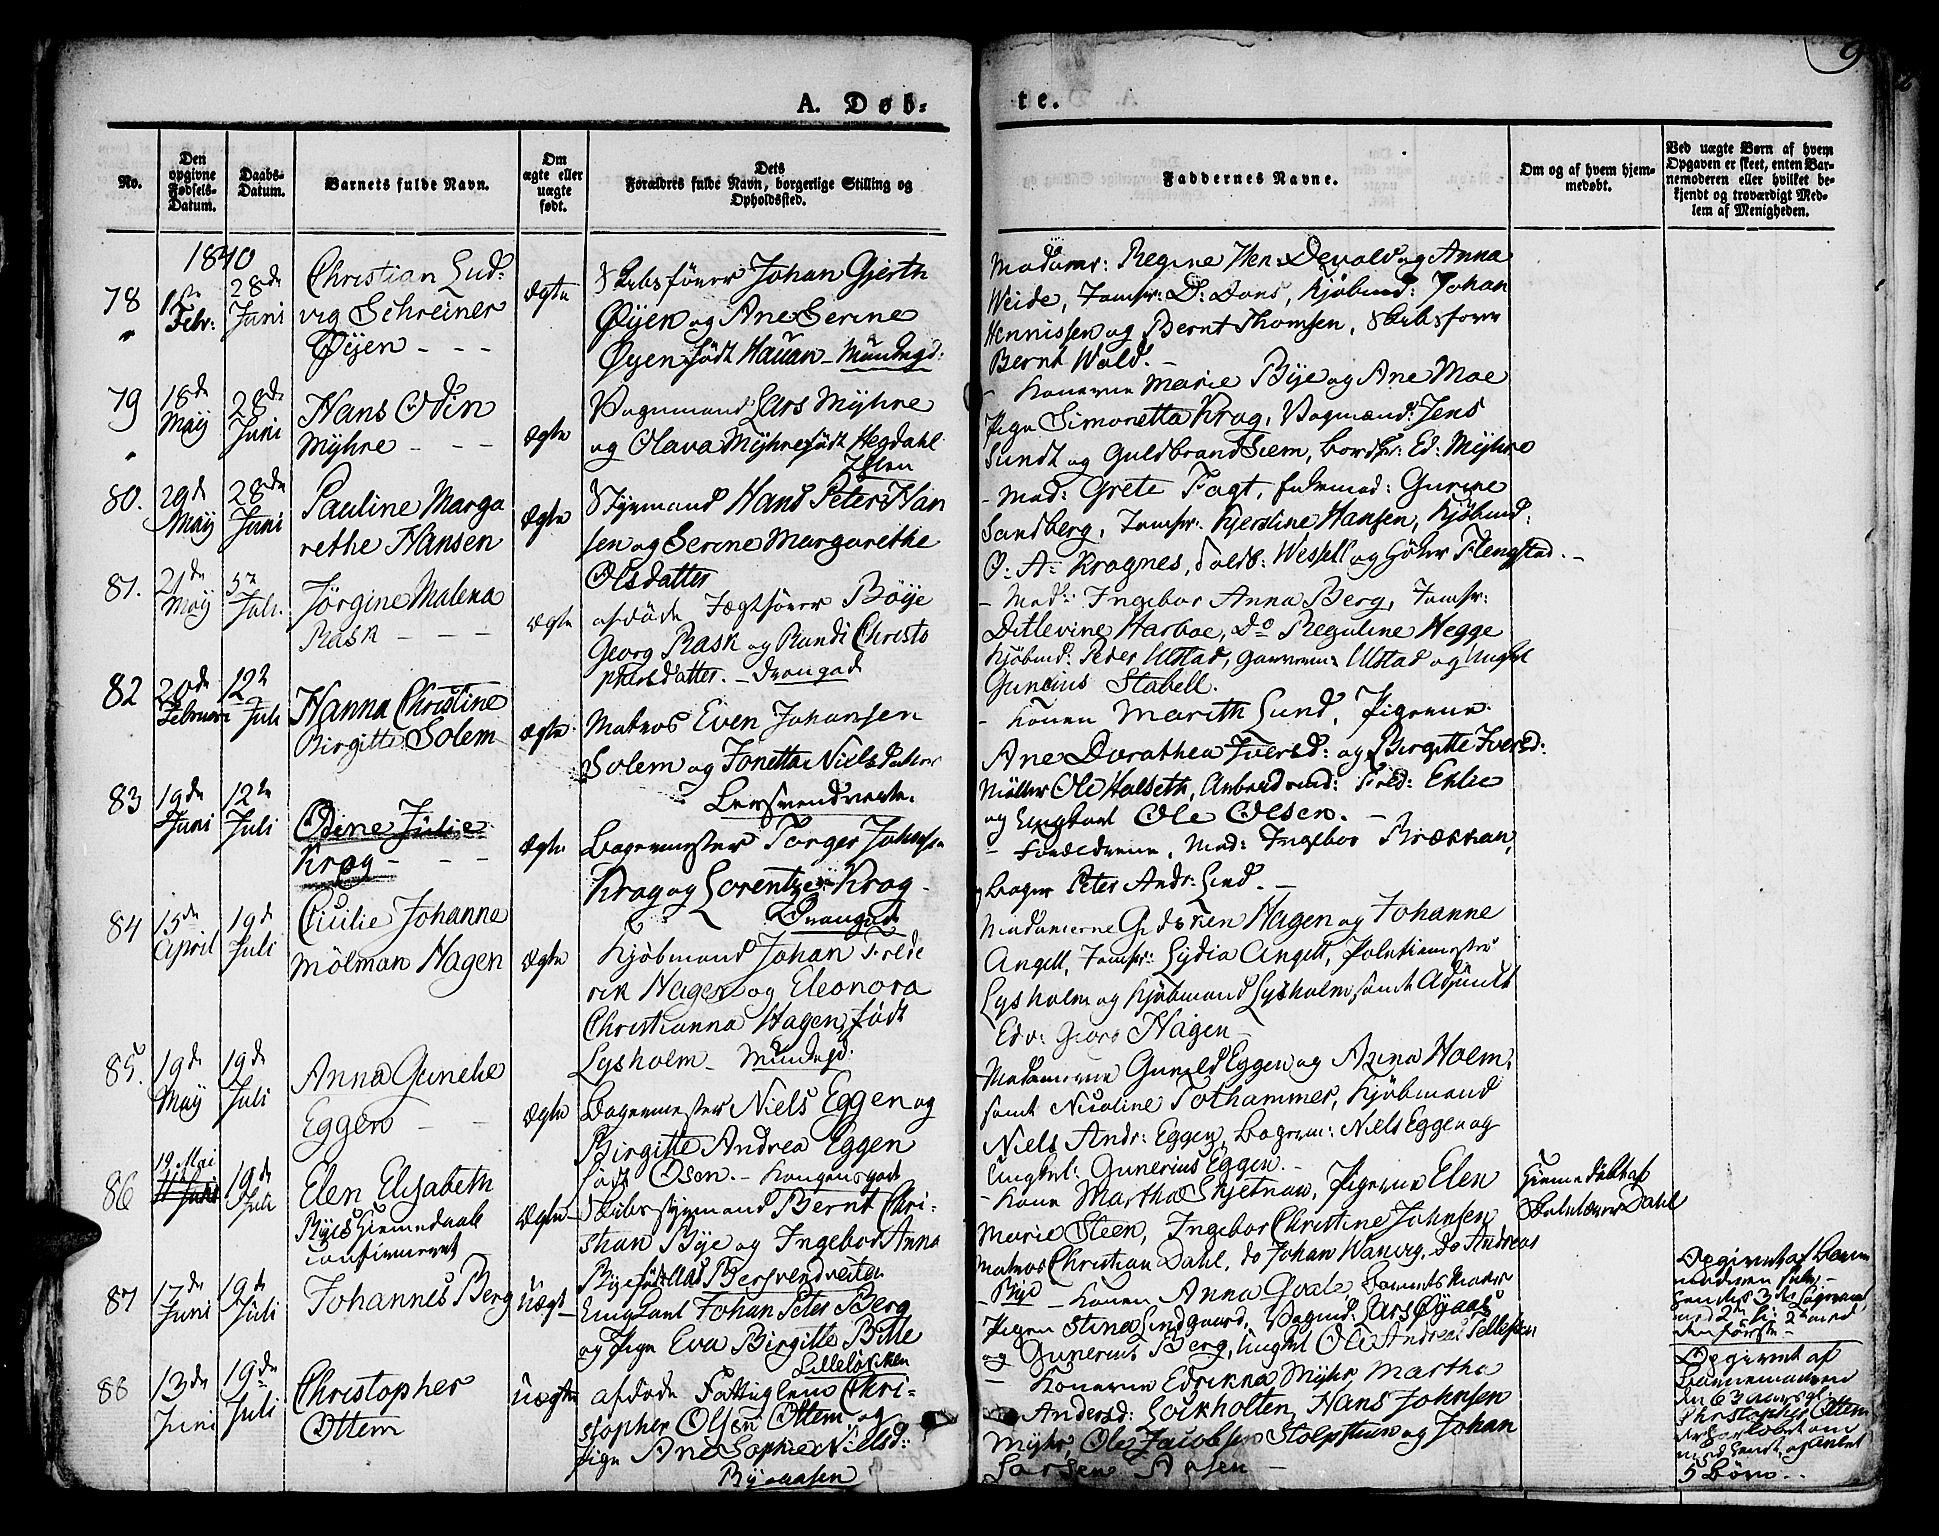 A. Døb-
te.
9
No.
Den opgivne Fødsels-Datum.
Daabs-Datum.
Barnets fulde Navn.
Om ægte eller uægte født.
Dets Forældres fulde Navn, borgerlige Stilling og Opholdssted.
Faddernes Navne.
Om og af hvem hjemmedøbt.
Ved uægte Børn af hvem Opgaven er skeet, enten Barnemoderen eller hvilket bekjendt og troværdigt Medlem af Menigheden.
1840
78
Febr:
28de
Juni
Christian Lud-
vig Schreiner
Øyen
Ægte
Skibsfører Johan Gjerth
Øyen og Ane Serine
Øyen født Hauan
Madamr: Regine Devold og Anna
Weide, Jomfr: D: Dons, Kjøbmd: Johan
Hennissen og Bernt Thomsen, Skibsfører
Bernt Wold.
79
18de
May
28de
Juni
Hans Odin
Myhre
Ægte
Vognmand Lars Myhre
og Olava Myhre født Hegdahl
Ihlen
Konerne Marie Bye og Ane Moe
Pige Simonetta Krog, Vogmænd: Jens
Sundt og Guldbrand Siem, Ed: Myhre
80.
29de
May
28de
Juni
Pauline Marga
rethe Hansen
Ægte
Styrmand Hans Peter Han
sen og Serine Margarethe
Olsdatter
Mad: Grete Fagt, Gurine
Sandberg, Jomfr: Kjerstine Hansen, Kjøbmd:
O: A: Kragnes, Wessell og Flengstad.
81.
21de
May
5te
Juli.
Jørgine Malena
Rask
Ægte
afdøde Jægtfører Bøye
Georg Rask og Randi Christo
phersdatter. Dronggd
Mad: Ingebor Anna Berg, Jomfr:
Ditlevine Harboe, Do Reguline Hegge
Kjøbmd: Peder Ulstad, Ulstad og Ungkl
Gunerius Stabell.
82
20de
Februar
12te
Juli
Hanna Christine
Birgitte Solem
Ægte
Matros Even Johansen
Solem og Jonetta Nielsdatter
Konen Marith Lund, Pigerne
Ane Dorathea Iversd: og Birgitte Iversd:
Møller Ole Halseth, Arbeidsmd: Fred:
og Ungkarl Ole Olsen.
83
19de
Juni
12te
Juli
Odine Julie
Krog
Ægte
Bagermester Torger Johnsen
Krog og Lorentze Krog
Drongad
Forældrene, Mad: Ingebor Brækkan,
Bager Peter Andr: Lind.
84
15de
April
19de
Juli
Cicilie Johanne
Mölman Hagen
Ægte
Kjøbmand Johan Frede
rik Hagen og Eleonora
Christianna Hagen, født
Lysholm
Madamerne Hagen og Johanne
Angell, Jomfr: Lydia Angell, Politiemester
Lysholm og Kjøbmand Lysholm samt Adjunct
Edv: Georg Hagen
85.
19de
May
19de
Juli
Anna Gunelie
Eggen
Ægte
Bagermester Niels Eggen og
Birgitte Andrea Eggen
født Olsen. Kongensgad
Madamerne Gunild Eggen og Anna Holm,
samt Nicoline Tothammer, Kjøbmand
Niels Andr: Eggen, Bagerm: Niels Eggen og
Ungkl: Gunerius Eggen.
86
19 Mai
11 Juli
19de
Juli
Elen Elisabeth
Bye Hiemmedaab
confirmeret
Ægte
Skibsstyrmand Bernt Chri-
stian Bye og Ingebor Anna
Bye født
Kone Martha Skjetnan, Pigerne Elen
Marie Steen, Ingebor Christine Johnsen
Matros Christian Dahl, do Johan Warberg, do Andreas
Bye
Hiemmedøbt af
Dahl
87
17de
Juni
19de
Juli
Johannes Berg
Uægte
Ungkarl Johan Peter Berg
og Pige Eva Birgitte Bitte
Konen Anna Qvale, Barnets Moder
Pigen Stina Lindgaard, Vogmd: Lars Øyaas
og Gunerius Berg, Ungkl Ole Andreas Pellesen
Opgivet af Barne
moderen selv,
hendes 3de
med 2de
den første
88
13de
Juni
19de
Juli
Christopher
Ottem
Uægte
afdøde Fattiglem Chri-
stopher Olsen Ottem og
Pige Ane Sophie Nielsd:
Byaasen
Konerne Edrikna Myhr, Martha
Andersd: Lockholten, Hans Johnsen
Myhr, Ole Jacobsen og Johan
Larsen Aasen
Opgivet af
Barnemoderen
den 63 aars gl.
Christopher Ottem
med hende, og avlet
5 Børn.